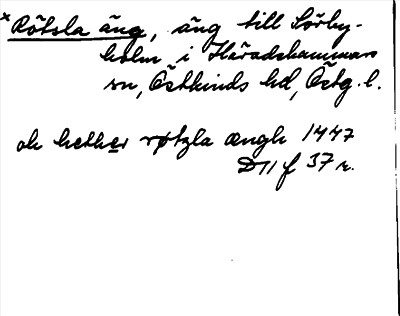 * Rötsla äng, äng till Sörby-
holm i Häradshammars
sn, Östkinds hd, Östg. l.
ok hether røtzla ængh 1447
D 11 f 37 r.